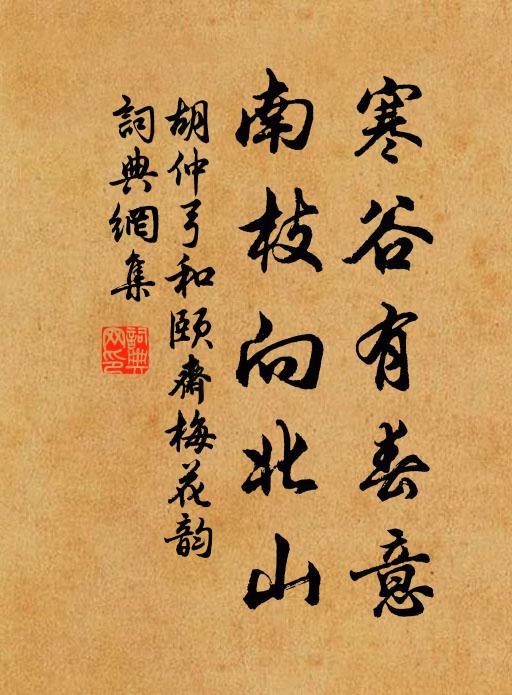 寒谷有春意
南枝向北山
胡仲弓和頤齋梅花韵
詞典網集
詞典
网印